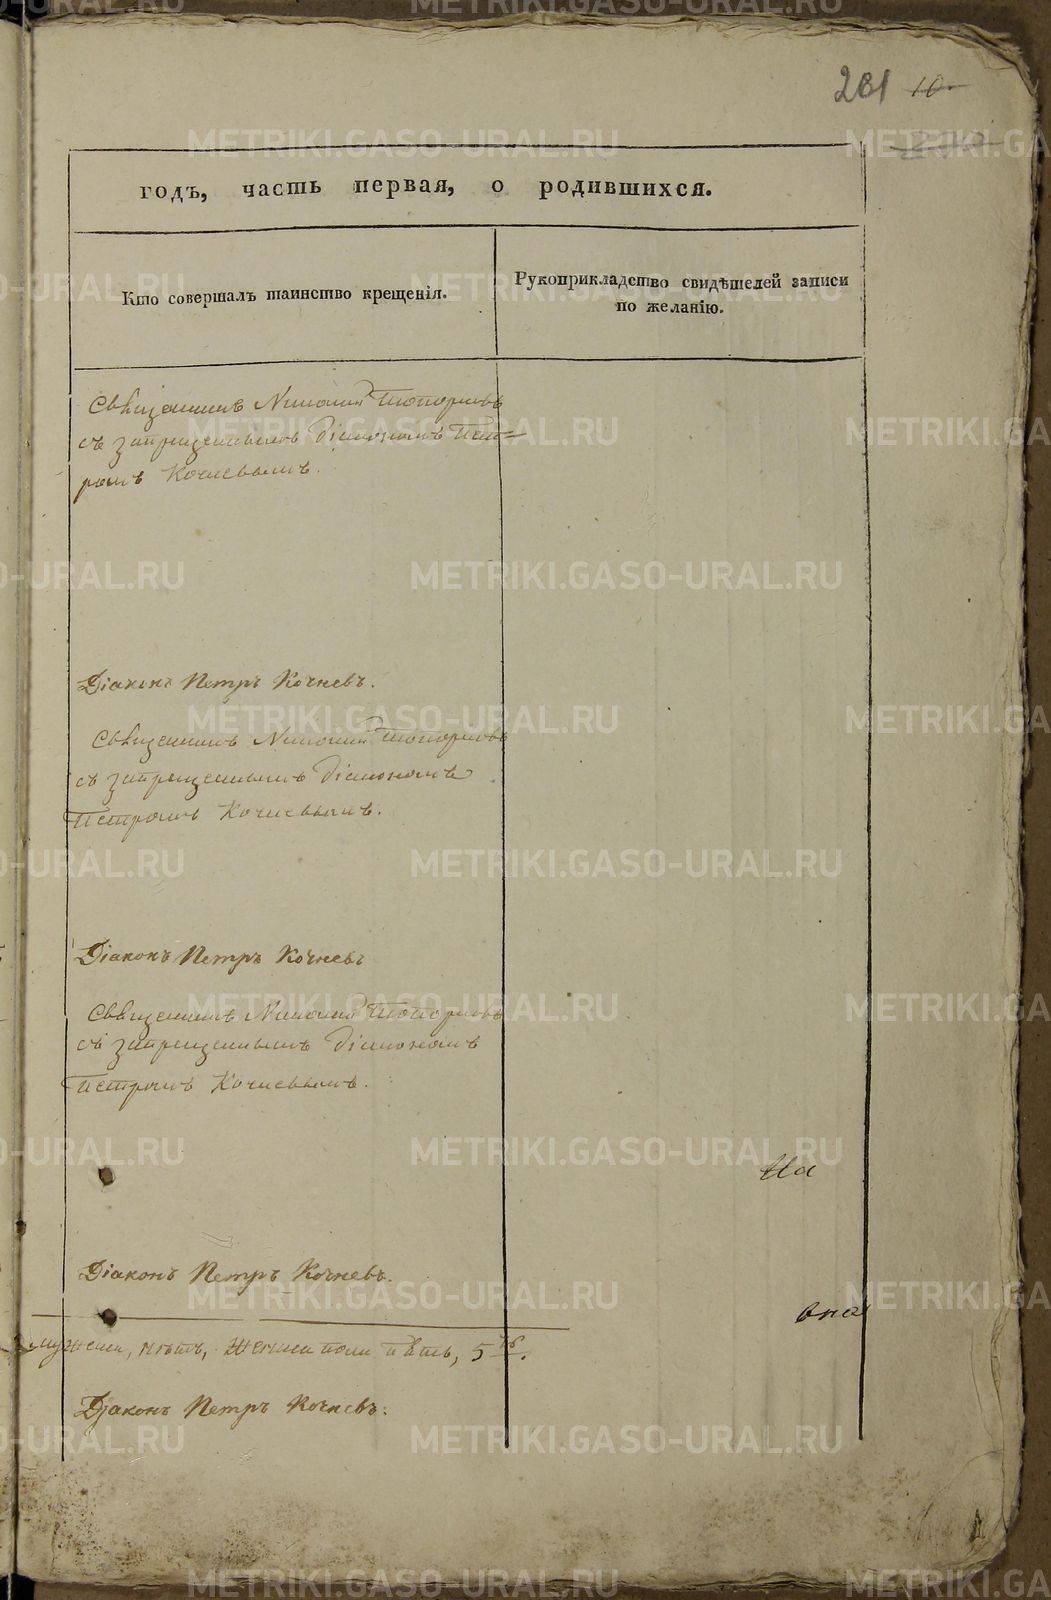 261 10.
годъ, часть первая, о родившихся.
Кто совершалъ таинство крещенія.
Рукоприкладство свидѣтелей записи
по желанію.
Священникъ Николай Топорковъ
съ запрещеннымъ діакономъ Пет-
ромъ Кочневымъ.
Діаконъ Петръ Кочневъ.
Священникъ Николай Топорковъ
съ запрещеннымъ діакономъ
Петромъ Кочневымъ.
Діаконъ Петръ Кочневъ
Священникъ Николай Топорковъ
съ запрещеннымъ діакономъ
Петромъ Кочневымъ.
На
Діаконъ Петръ Кочневъ.
пять, женска пола пять, 5
Діаконъ Петръ Кочневъ.
METRIKI.GASO-URAL.RU